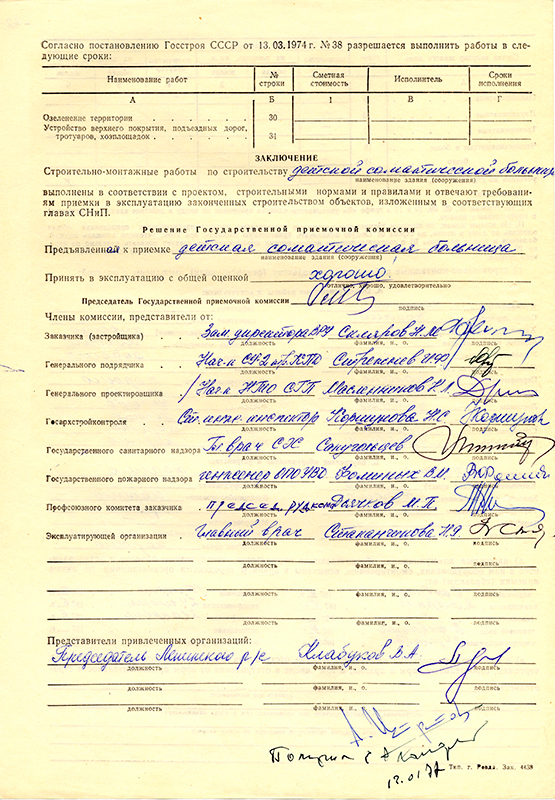 Согласно постановлению Госстроя СССР от 13.03.1974 г. № 38 разрешается выполнить работы в сле-
дующие сроки:
Наименование работ № строки Сметная стоимость Исполнитель Сроки исполнения
А Б 1 В Г
Озеленение территории . . . . . . 30
Устройство верхнего покрытия, подъездных дорог,
тротуаров, хозплощадок . . . . . . 31
ЗАКЛЮЧЕНИЕ
Строительно-монтажные работы по строительству детской соматической больницы
наименование здания (сооружения)
выполнены в соответствии с проектом, строительными нормами и правилами и отвечают требовани-
ям приемки в эксплуатацию законченных строительством объектов, изложенным в соответствующих
главах СНиП.
Решение Государственной приемочной комиссии
Предъявленная к приемке детская соматическая больница
наименование здания (сооружения)
Принять в эксплуатацию с общей оценкой хорошо
отлично, хорошо, удовлетворительно
Председатель Государственной приемочной комиссии
подпись
Члены комиссии, представители от:
Заказчика (застройщика) . Зам. директора Скляров Н.М.
должность фамилия, и., о. подпись
Генерального подрядчика . Нач-к
должность фамилия, и., о. подпись
Генерального проектировщика . Нач НТО Масленников
должность фамилия, и., о. подпись
Госархстройконтроля . Ст. инж. инспектор Коршунова Н.С.
должность фамилия, и., о. подпись
Государственного санитарного надзора Гл. врач СЭС
должность фамилия, и., о. подпись
Государственного пожарного надзора инженер Фоминых В.М.
должность фамилия, и., о. подпись
Профсоюзного комитета заказчика . председ. рудкома Дьячков М.П.
должность фамилия, и., о. подпись
Эксплуатирующей организации . Главный врач
должность фамилия, и., о. подпись
должность фамилия, и., о. подпись
должность фамилия, и., о. подпись
Представители привлеченных организаций:
Председатель Ленинского р/с Хлабуков В.А.
должность фамилия, и., о. подпись
должность фамилия, и., о. подпись
должность фамилия, и., о. подпись
12.01.77
Тип. г. Ревда. Зак. 4438